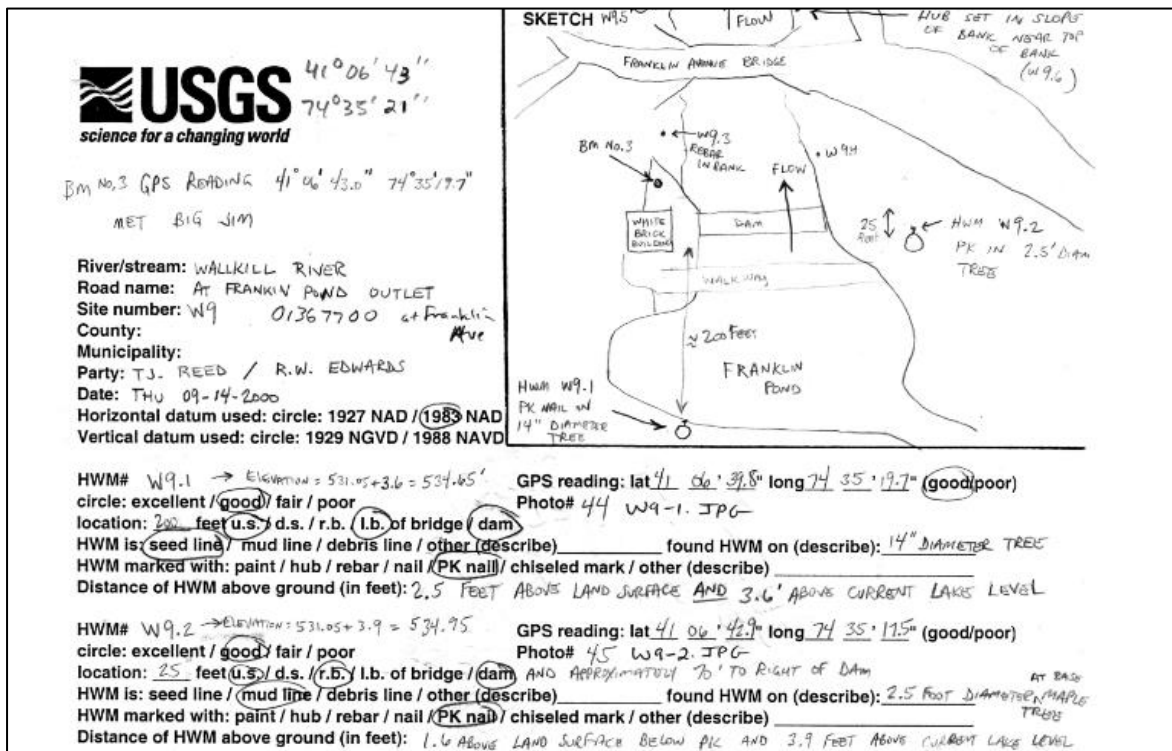 USGS
science for a changing world
41° 06' 43"
74° 35' 21"
BM No.3 GPS READING 41° 06' 43.0" 74° 35' 19.7"
MET BIG JIM
River/stream: WALLKILL RIVER
Road name: AT FRANKIN POND OUTLET
Site number: W9 01367700 at Franklin Ave
County:
Municipality:
Party: T.J. REED / R.W. EDWARDS
Date: THU 09-14-2000
Horizontal datum used: circle: 1927 NAD / 1983 NAD
Vertical datum used: circle: 1929 NGVD / 1988 NAVD
SKETCH W9.5
FLOW
HUB SET IN SLOPE
OF BANK NEAR TOP
OF BANK
(W9.6)
FRANKLIN AVENUE BRIDGE
BM No.3
W9.3
REBAR
IN BANK
W9.4
FLOW
WHITE
BRICK
BUILDING
DAM
25
FEET
HWM W9.2
PK IN 2.5' DIAM
TREE
WALKWAY
≈ 200 FEET
FRANKLIN
POND
HWM W9.1
PK NAIL IN
14" DIAMETER
TREE
HWM# W9.1 → ELEVATION = 531.05+3.6 = 534.65' GPS reading: lat 41 06 ' 39.8" long 74 35 ' 19.7" (good/poor)
circle: excellent / good / fair / poor Photo# 44 W9-1.JPG
location: 200 feet u.s. / d.s. / r.b. / l.b. of bridge / dam
HWM is: seed line / mud line / debris line / other (describe)__________ found HWM on (describe): 14" DIAMETER TREE
HWM marked with: paint / hub / rebar / nail / PK nail / chiseled mark / other (describe) __________
Distance of HWM above ground (in feet): 2.5 FEET ABOVE LAND SURFACE AND 3.6' ABOVE CURRENT LAKE LEVEL
HWM# W9.2 → ELEVATION = 531.05 + 3.9 = 534.95 GPS reading: lat 41 06 ' 42.9" long 74 35 ' 17.5" (good/poor)
circle: excellent / good / fair / poor Photo# 45 W9-2.JPG
location: 25 feet u.s. / d.s. / r.b. / l.b. of bridge / dam AND APPROXIMATELY 70' TO RIGHT OF DAM
HWM is: seed line / mud line / debris line / other (describe)__________ found HWM on (describe): 2.5 FOOT DIAMETER MAPLE TREE AT BASE
HWM marked with: paint / hub / rebar / nail / PK nail / chiseled mark / other (describe) __________
Distance of HWM above ground (in feet): 1.6 ABOVE LAND SURFACE BELOW PK AND 3.9 FEET ABOVE CURRENT LAKE LEVEL